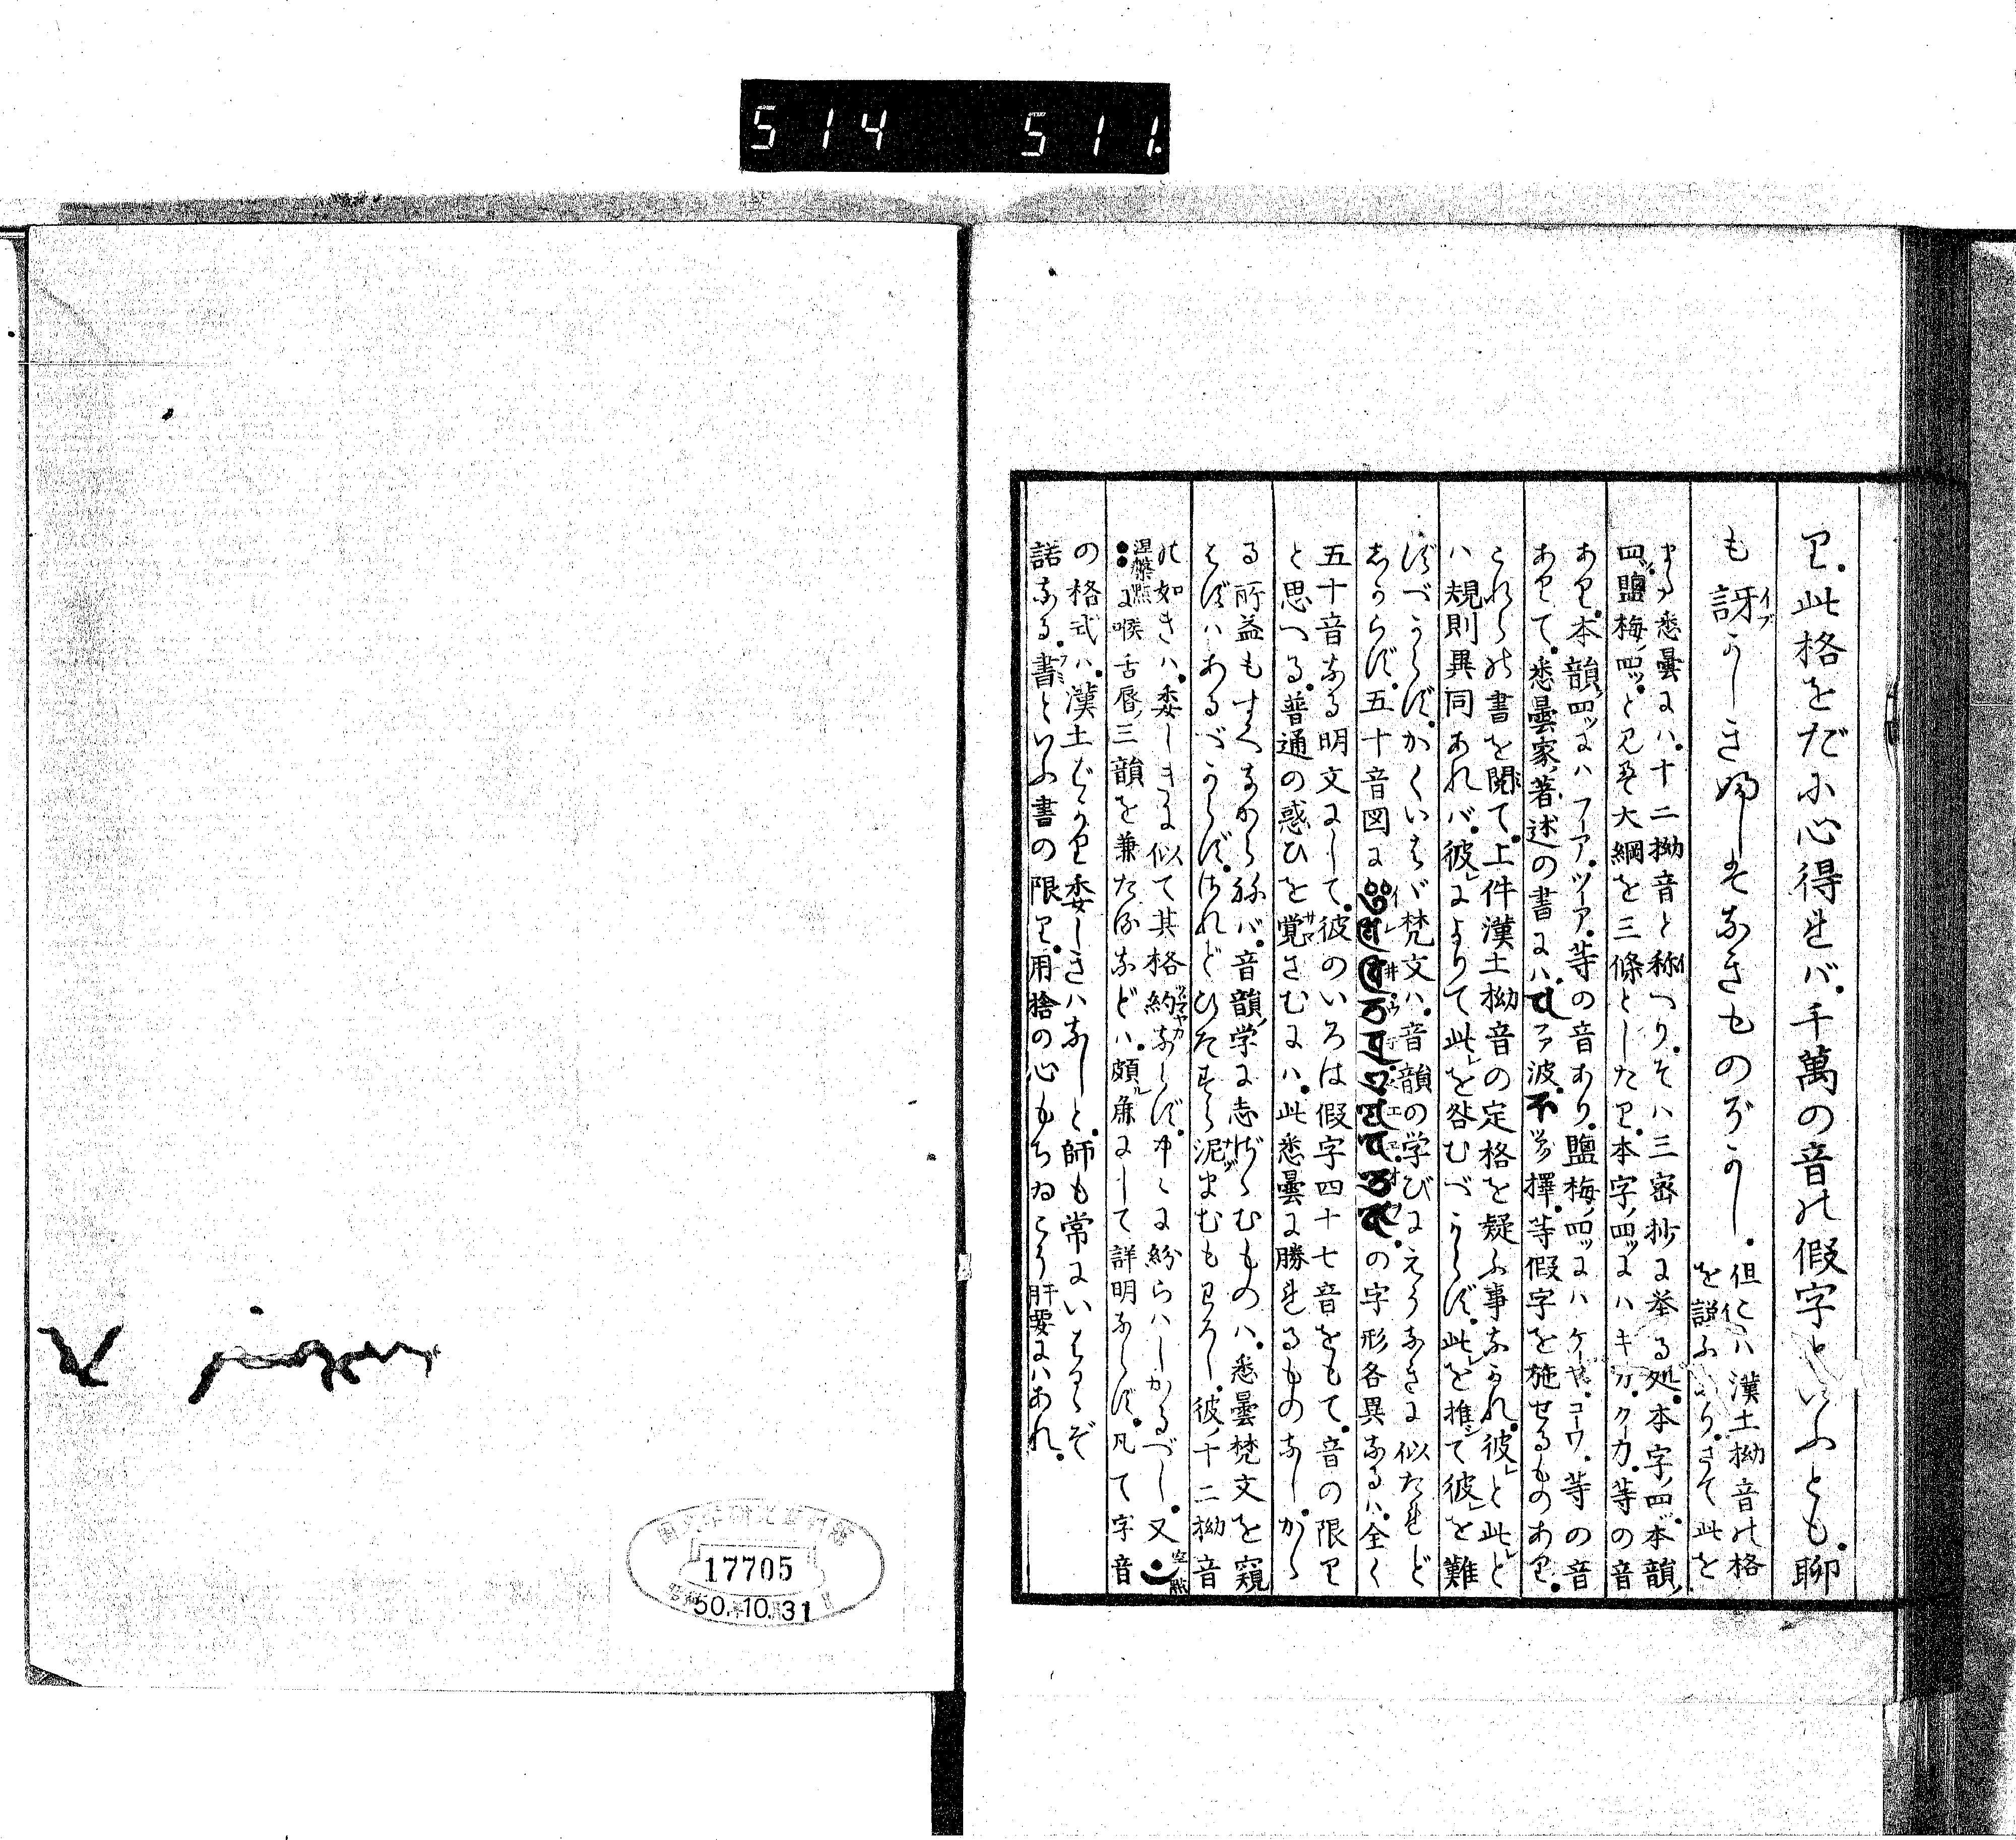 514 511.
り。此格をだに心得れバ。千萬の音の假字といふとも。聊
も訝しきふしハなきものぞかし。
但にハ漢土拗音の格
を説ふ さて此を
悉曇にハ。十二拗音と称へり。そハ三密抄に挙る処。本字ノ四。本韻ノ
四。鹽梅ノ四ッ。と 大綱を三條としたり。本字ノ四ッにハキカ。クーカ。等の音
あり。本韻ノ四ッにハフーア。ツーア。等の音あり。鹽梅ノ四ッにハケーヤ。コーワ。等の音
ありて。悉曇家ノ著述の書にハ。 ファ波。 擇。等假字を施せるものあり。
これらの書を閲て。上件漢土拗音の定格を疑ふ事なかれ。彼レと此レと
ハ規則異同あれバ。彼レによりて此レを咎むべからず。此レを推シて彼レを難
ずべからず。かくいはゞ梵文ハ。音韻の学びにえうなきに似たれど
しからず。五十音図に の字形各異なるハ。全く
五十音なる明文にして。彼のいろは假字四十七音をもて。音の限り
と思へる。普通の惑ひを覚さむにハ。此悉曇に勝れるものなし。かゝ
る所益もすくなからねバ。音韻ノ学に志ざゝむものハ。悉曇梵文を窺
はずハあるべからず。されどひたすら泥まむもわろし。彼ノ十二拗音
の如きハ。委しきに似て其格約ならず。中々に紛らハしかるべし。又 空點
涅槃點に喉舌唇ノ三韻を兼たるなどハ。頗ル麁にして詳明ならず。凡て字音
の格式ハ。漢土ばかり委しきハなしと。師も常にいはるゝぞ
諾なる。書といふ書の限り。用捨の心もちゐこそ肝要にハあれ。
17705
50.10.31